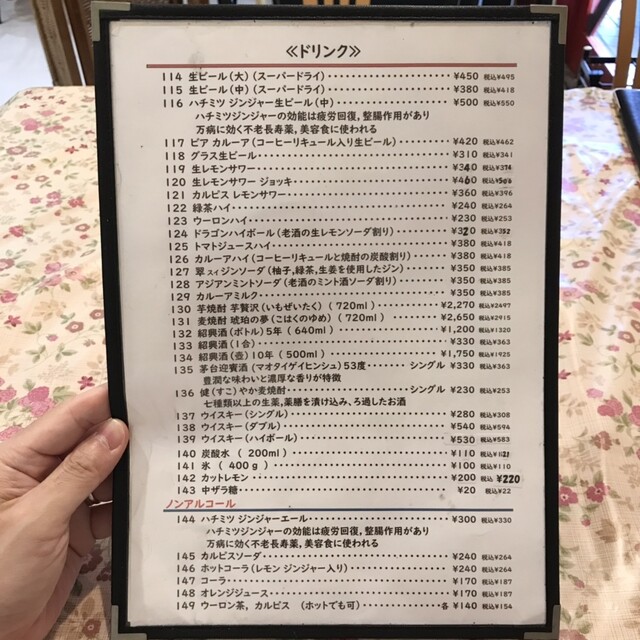 ≪ドリンク≫
114 生ビール(大)(スーパードライ) ¥450 税込¥495
115 生ビール(中)(スーパードライ) ¥380 税込¥418
116 ハチミツ ジンジャー生ビール(中) ¥500 税込¥550
ハチミツジンジャーの効能は疲労回復,整腸作用があり
万病に効く不老長寿薬,美容食に使われる
117 ビア カルーア(コーヒーリキュール入り生ビール) ¥420 税込¥462
118 グラス生ビール ¥310 税込¥341
119 生レモンサワー
120 生レモンサワー ジョッキ
121 カルピス レモンサワー ¥360 税込¥396
122 緑茶ハイ ¥240 税込¥264
123 ウーロンハイ ¥230 税込¥253
124 ドラゴンハイボール(老酒の生レモンソーダ割り)
125 トマトジュースハイ ¥380 税込¥418
126 カルーアハイ(コーヒーリキュールと焼酎の炭酸割り) ¥380 税込¥418
127 翠スイジンソーダ(柚子,緑茶,生姜を使用したジン) ¥350 税込¥385
128 アジアンミントソーダ(老酒のミント酒ソーダ割り) ¥350 税込¥385
129 カルーアミルク ¥350 税込¥385
130 芋焼酎 芋贅沢(いもぜいたく)(720ml) ¥2,270 税込¥2497
131 麦焼酎 琥珀の夢(こはくのゆめ)(720ml) ¥2,650 税込¥2915
132 紹興酒(ボトル)5年(640ml) ¥1,200 税込¥1320
133 紹興酒(1合) ¥330 税込¥363
134 紹興酒(壺)10年(500ml) ¥1,750 税込¥1925
135 茅台迎賓酒(マオタイゲイヒンシュ)53度 シングル ¥330 税込¥363
豊潤な味わいと濃厚な香りが特徴
136 健(すこ)やか麦焼酎 シングル ¥230 税込¥253
七種類以上の生薬,薬膳を漬け込み、ろ過したお酒
137 ウイスキー(シングル) ¥280 税込¥308
138 ウイスキー(ダブル) ¥540 税込¥594
139 ウイスキー(ハイボール) ¥530 税込¥583
140 炭酸水(200ml) ¥110
141 氷(400g) ¥100 税込¥110
142 カットレモン ¥200 税込 ¥220
143 中ザラ糖 ¥20 税込¥22
ノンアルコール
144 ハチミツ ジンジャーエール ¥300 税込¥330
ハチミツジンジャーの効能は疲労回復,整腸作用があり
万病に効く不老長寿薬,美容食に使われる
145 カルピスソーダ ¥240 税込¥264
146 ホットコーラ(レモン ジンジャー入り) ¥240 税込¥264
147 コーラ ¥170 税込¥187
148 オレンジジュース ¥170 税込¥187
149 ウーロン茶, カルピス (ホットでも可) 各 ¥140 税込¥154